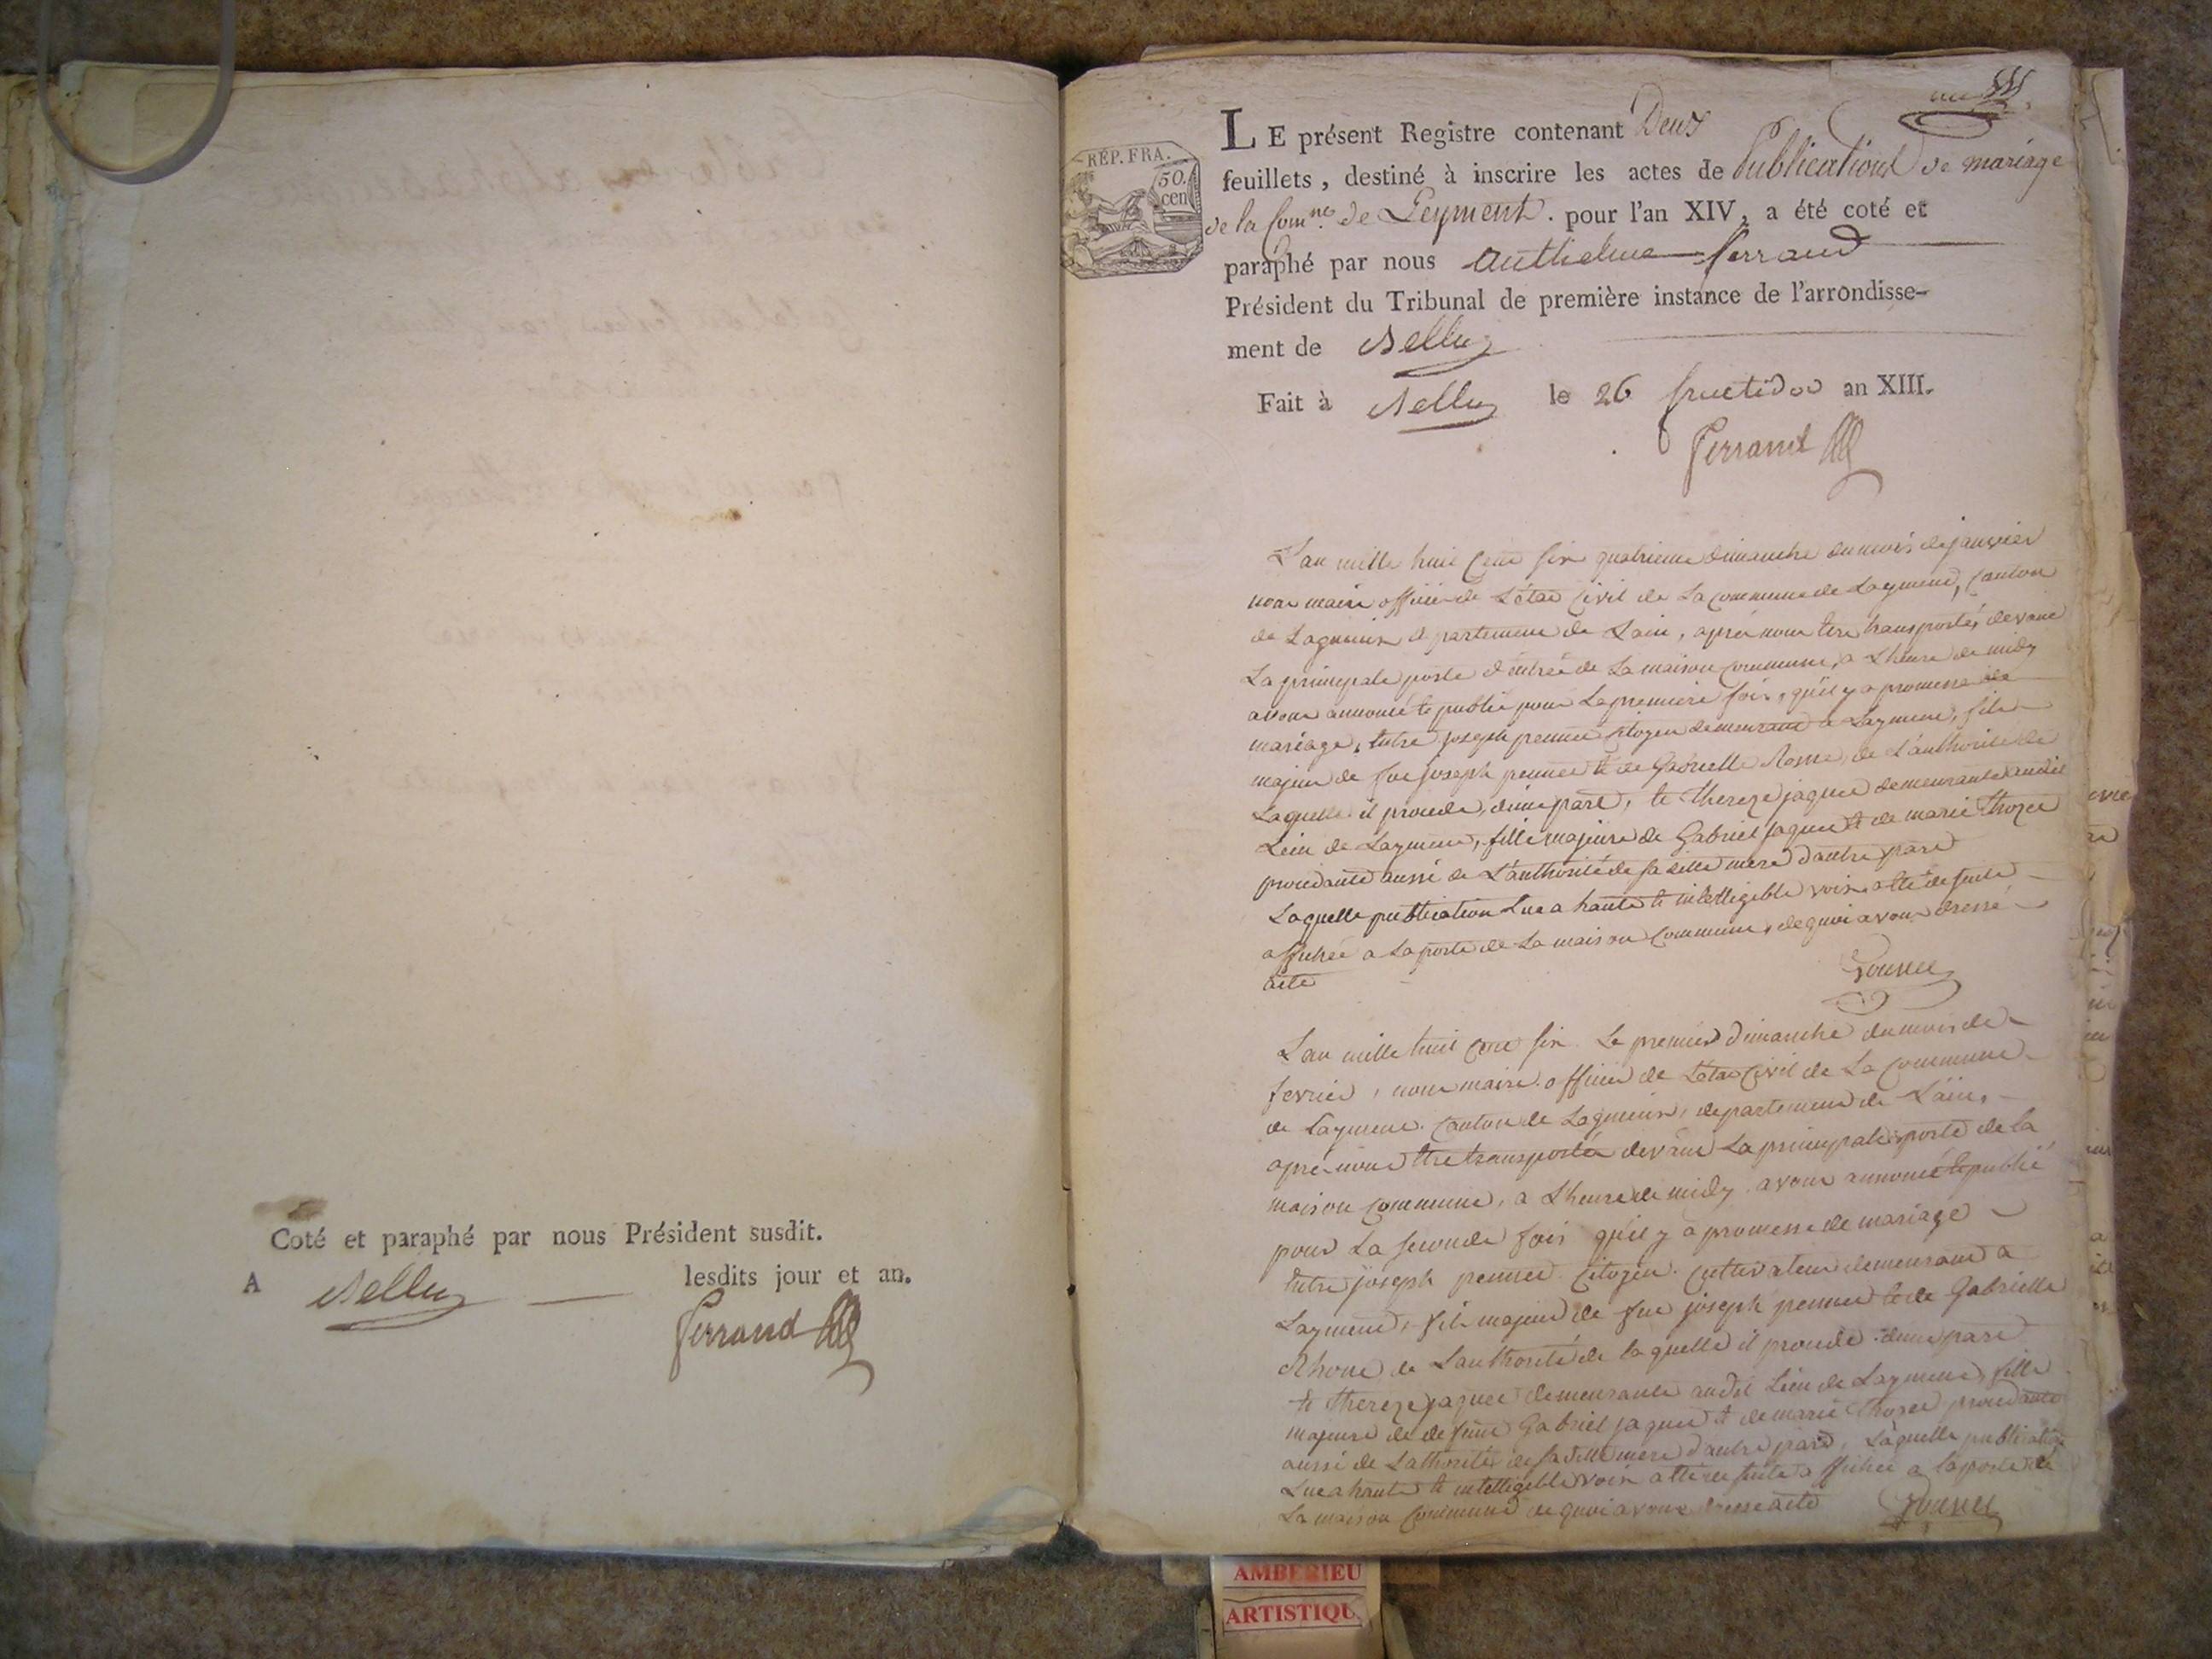 Coté et paraphé par nous Président susdit.
A Belley lesdits jour et an.
Ferrand
RÉP. FRA.
50.
cen
LE présent Registre contenant Deux
feuillets, destiné à inscrire les actes de Publications de mariage
de la Comne. de Leyment. pour l'an XIV, a été coté et
paraphé par nous Anthelme ferrand
Président du Tribunal de première instance de l'arrondisse-
ment de Belley
Fait à Belley le 26 fructidor an XIII.
Ferrand
L'an mille huit Cent six quatrieme dimanche du mois de janvier
nous maire officier de L'état Civil de La commune de Layment, Canton
de Lagnieux departement de Lain, aprés nous être transportés devant
La principale porte d'entrée de La maison Commune, a L'heure de midy
avons annoncé et publié pour La premiere fois, qu'il y a promesse de
mariage, entre joseph pennet Citoyen demeurant a Layment, fils
majeur de feu joseph pennet et de Gabrielle Rosne, de L'authorité de
Laquelle il procede, d'une part, et Thereze jaquet demeurante audit
Lieu de Layment, fille majeure de Gabriel jaquet et de marie Thozet
procedante aussi de L'authorité de sa ditte mere d'autre part
Laquelle publication Lue a haute et intelligible voix, a été de suite
affichée a La porte de La maison Commune, de quoi avons dressé
acte
L'an mille huit Cent six Le premier dimanche du mois de
fevrier, nous maire officier de L'état Civil de La Commune
de Layment Canton de Lagnieux, departement de L'ain,
aprés nous être transportés devant La principale porte de la
maison Commune, a L'heure de midy avons annoncé et publié
pour La seconde fois qu'il y a promesse de mariage
entre joseph pennet Citoyen Cultivateur demeurant a
Layment, fils majeur de feu joseph pennet et de Gabrielle
Rhone de L'authorité de laquelle il procede d'une part
et Thereze jaquet demeurante audit Lieu de Layment, fille
majeure de defunt Gabriel jaquet et de marie Thozet procedante
aussi de L'athorité de sa ditte mere d'autre part, Laquelle publication
Lue a haute et intelligible voix a été de suite affichée a la porte de
La maison Commune de quoi avons dressé acte
AMBERIEU
ARTISTIQU